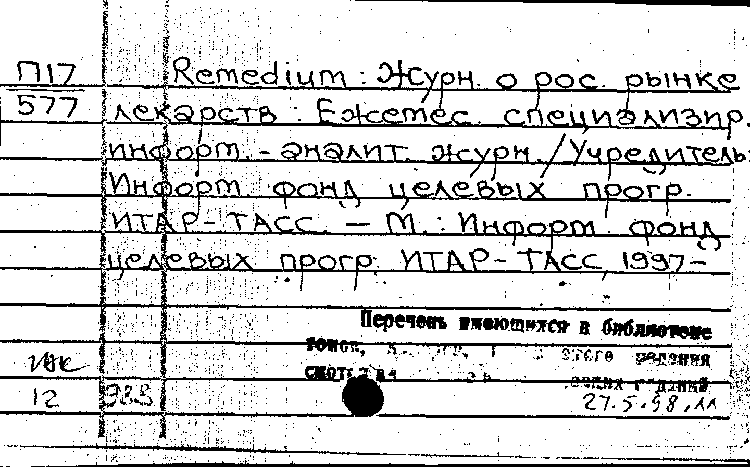 П17
577
Remedium : Журн. о рос. рынке
лекарств : Ежемес. специализир.
информ.-аналит. журн. / Учредитель:
Информ. фонд целевых прогр.
ИТАР-ТАСС. — М. : Информ. фонд
целевых прогр. ИТАР-ТАСС, 1997-
Перечень имеющихся в библиотеке
томов, этого издания
12
27.5.98